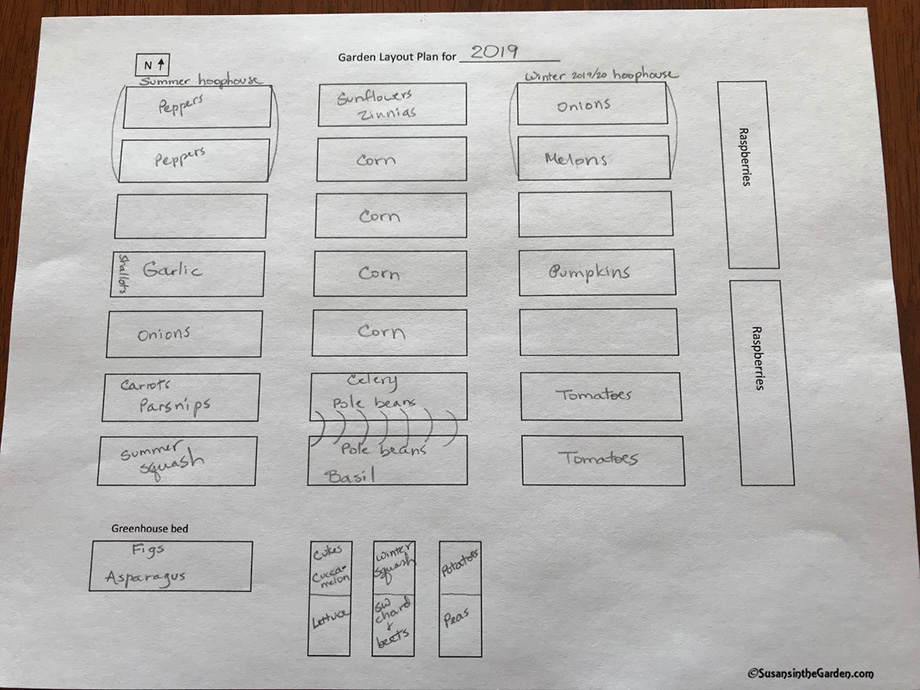 N
Garden Layout Plan for 2019
Summer hoophouse
Winter 2019/20 hoophouse
Peppers
Sunflowers
Zinnias
Onions
Raspberries
Peppers
Corn
Melons
Corn
Shallots
Garlic
Corn
Pumpkins
Onions
Corn
Raspberries
Carrots
Parsnips
Celery
Pole beans
Tomatoes
Summer
squash
Pole beans
Basil
Tomatoes
Greenhouse bed
Figs
Asparagus
Cukes
Cucca-
melon
Winter
squash
Potatoes
Lettuce
SW
chard
+
beets
Peas
©SusansintheGarden.com